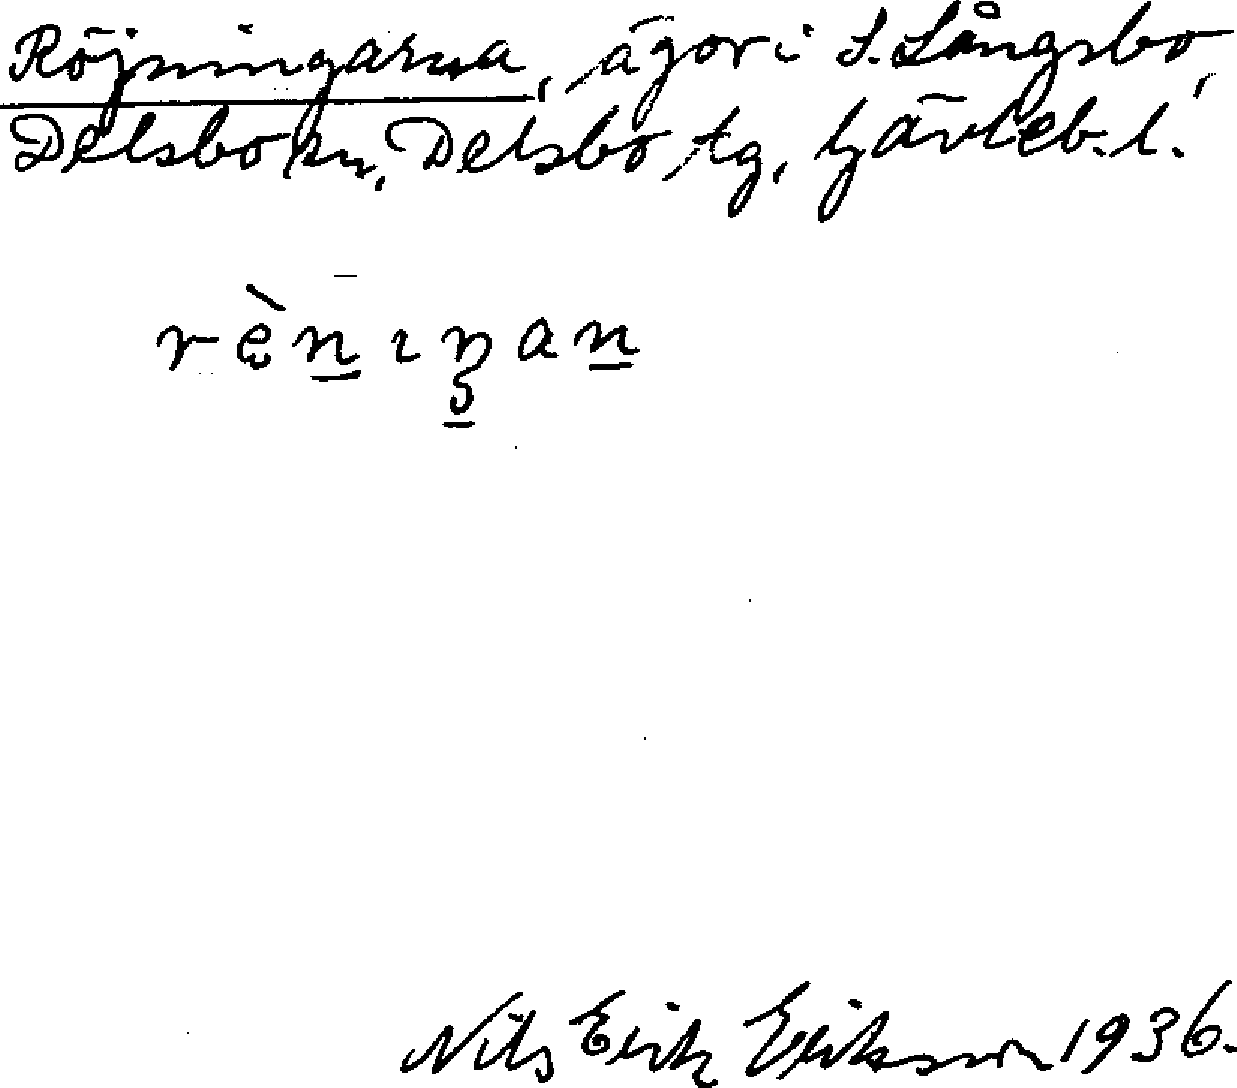 Röjningarna, ägor i S. Långsbo,
Delsbo sn, Delsbo tg, Gävleb. l.
Nils Erik Eriksson 1936.